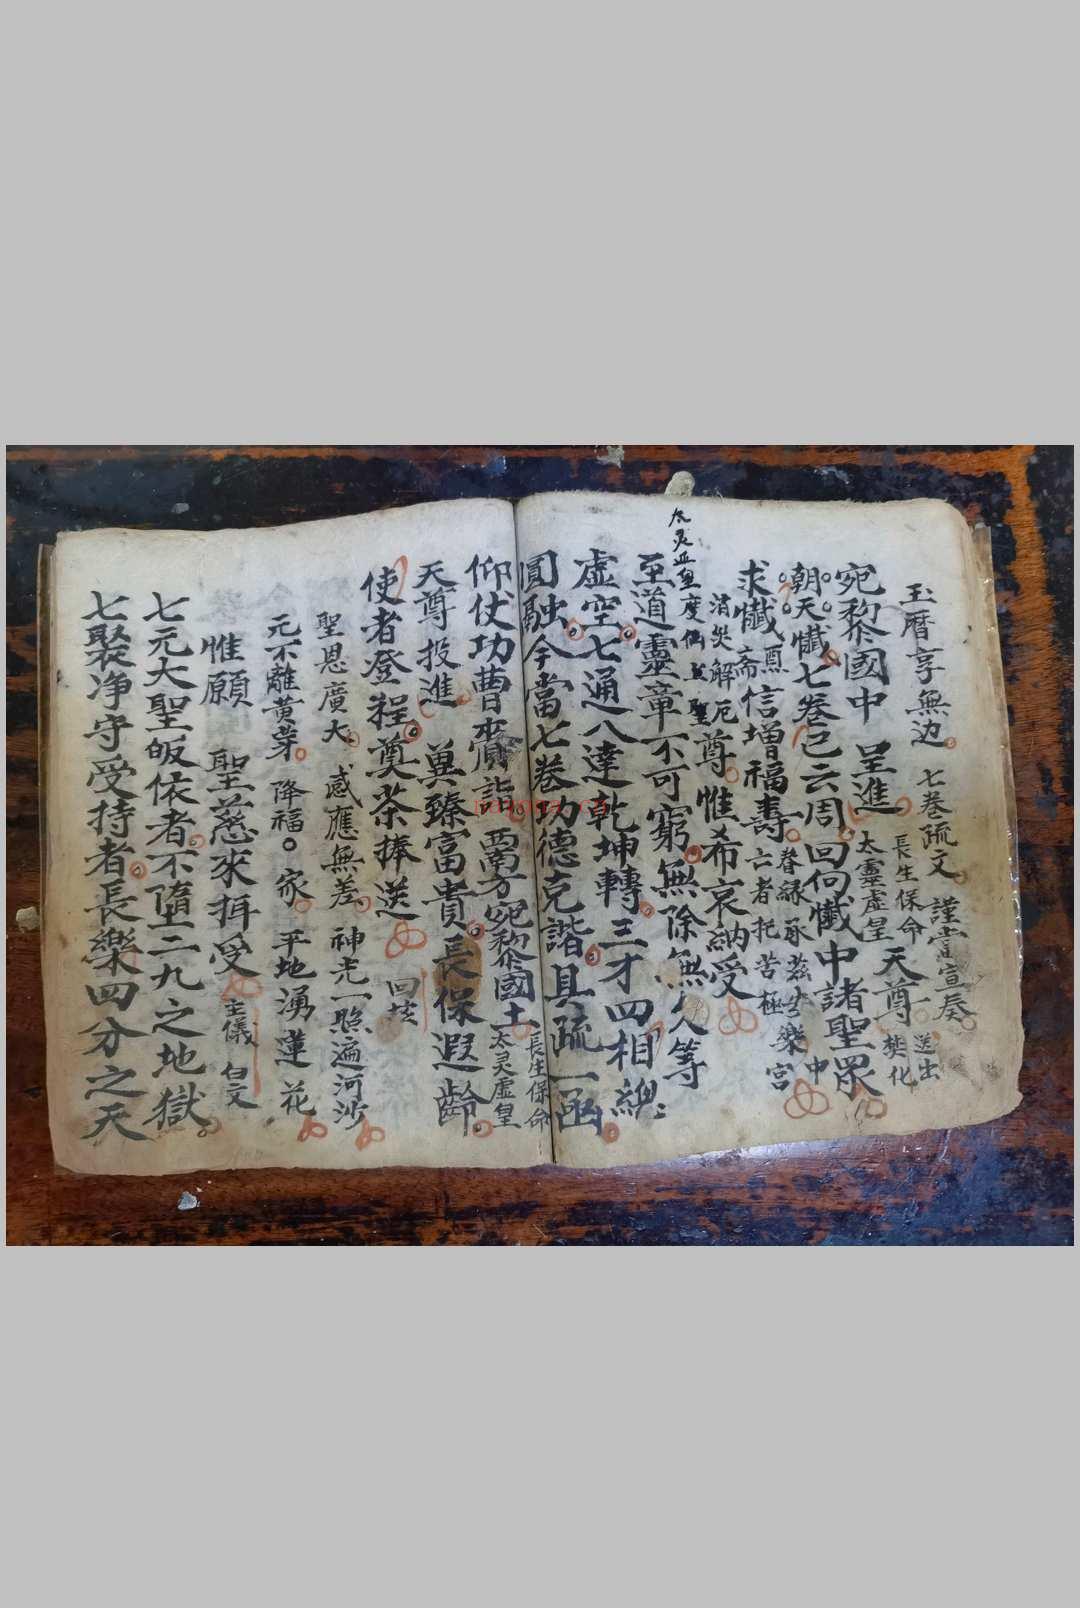 玉曆享無边 七巻疏文 謹當宣奏
長生保命 送出
宛黎國中 呈進 太靈虛皇 天尊 焚化
朝天懺七巻已云周回向懺中諸聖眾
求懺 信增福壽 眷緣承 樂中
斋 亡者托苦極 宮
消災解厄 聖尊 惟希哀納受
太灵 皇度
至道靈章不可窮無除無 久等
虛空七通八達乾坤轉三才四相
圓融今當七巻功德克諧具疏一函
仰仗功曹 賫詣 西方宛黎國土 長生保命
太灵虛皇
天尊 投進 冀臻富貴長保遐齡
使者登程奠茶捧送 回
聖恩廣大 感應無差 神光一照遍河沙
元不離黄芽 降福 家 平地湧蓮花
惟願 聖慈來拜受 主儀 白文
七元大聖皈依者不墮二九之地獄
七聚净守受持者長樂四分之天